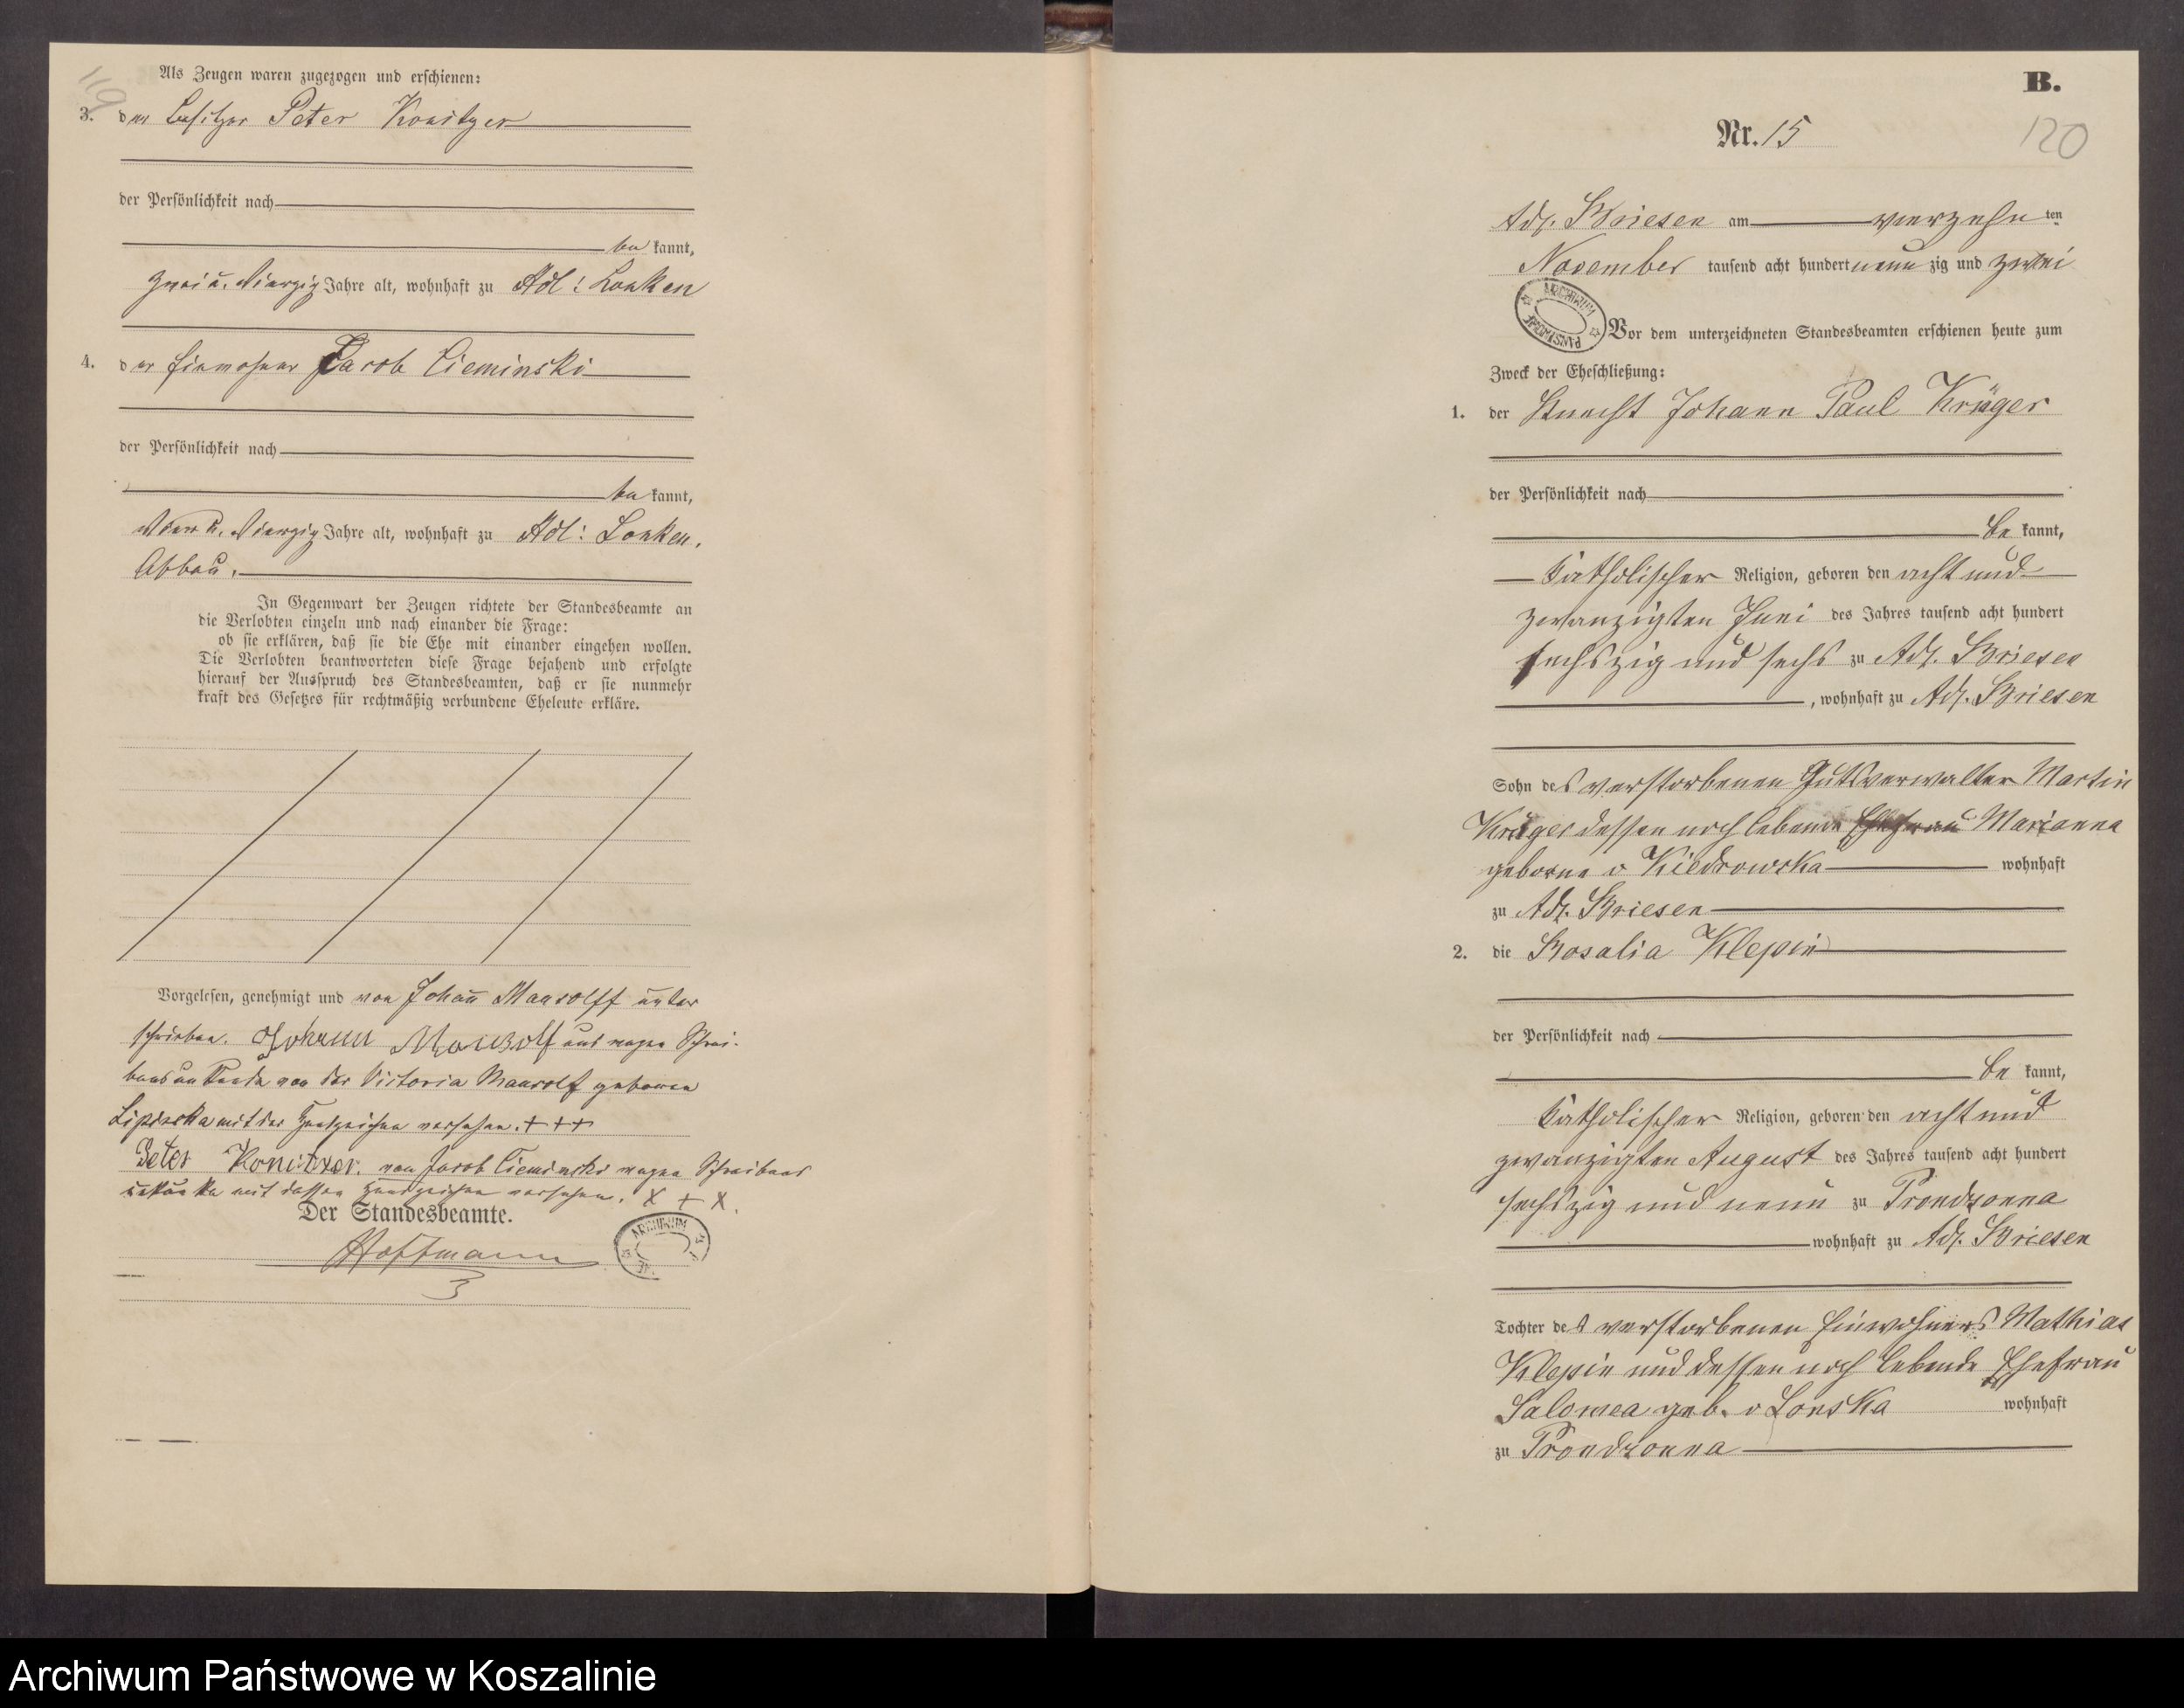 119
Als Zeugen waren zugezogen und erschienen:
3. der Besitzer Peter Konitzer
der Persönlichkeit nach
be kannt,
zwei u. vierzig Jahre alt, wohnhaft zu Adl: Lonken
4. der Einwohner Jacob Cieminski
der Persönlichkeit nach
be kannt,
vier u. vierzig Jahre alt, wohnhaft zu Adl: Lonken,
Abbau.
In Gegenwart der Zeugen richtete der Standesbeamte an
die Verlobten einzeln und nach einander die Frage:
ob sie erklären, daß sie die Ehe mit einander eingehen wollen.
Die Verlobten beantworteten diese Frage bejahend und erfolgte
hierauf der Ausspruch des Standesbeamten, daß er sie nunmehr
kraft des Gesetzes für rechtmäßig verbundene Eheleute erkläre.
Vorgelesen, genehmigt und von Johann Mansolff unter
schrieben. Johann und wegen Schrei-
bensunkunde von der Victoria Mansolf geborene
Lipinska mit der Handzeichen versehen. + + +
Peter Konitzer. von Jacob Cieminski wegen Schreibens
unkunde mit dessen Handzeichen versehen. X + X.
Der Standesbeamte.
Hoffmann
ARCHIWUM
B.
Nr. 15
120
Adl. Briesen am vierzehn ten
November tausend acht hundert neun zig und zwei
ARCHIWUM PAŃSTWOWE
Vor dem unterzeichneten Standesbeamten erschienen heute zum
Zweck der Eheschließung:
1. der Knecht Johann Paul Krüger
der Persönlichkeit nach
be kannt,
katholischer Religion, geboren den acht und
zwanzigten Juni des Jahres tausend acht hundert
sechszig und sechs zu Adl. Briesen
, wohnhaft zu Adl. Briesen
Sohn des verstorbenen Gutsverwalter Martin
Krüger dessen noch lebende Ehefrau Marianna
geborne v Kiedrowska wohnhaft
zu Adl. Briesen
2. die Rosalia Klepin
der Persönlichkeit nach
be kannt,
katholischer Religion, geboren den acht und
zwanzigten August des Jahres tausend acht hundert
sechszig und neun zu Prondzonna
wohnhaft zu Adl. Briesen
Tochter des verstorbenen Einwohners Mathias
Klepin und dessen noch lebende Ehefrau
Salomea geb. v Lonska wohnhaft
zu Prondzonna
Archiwum Państwowe w Koszalinie